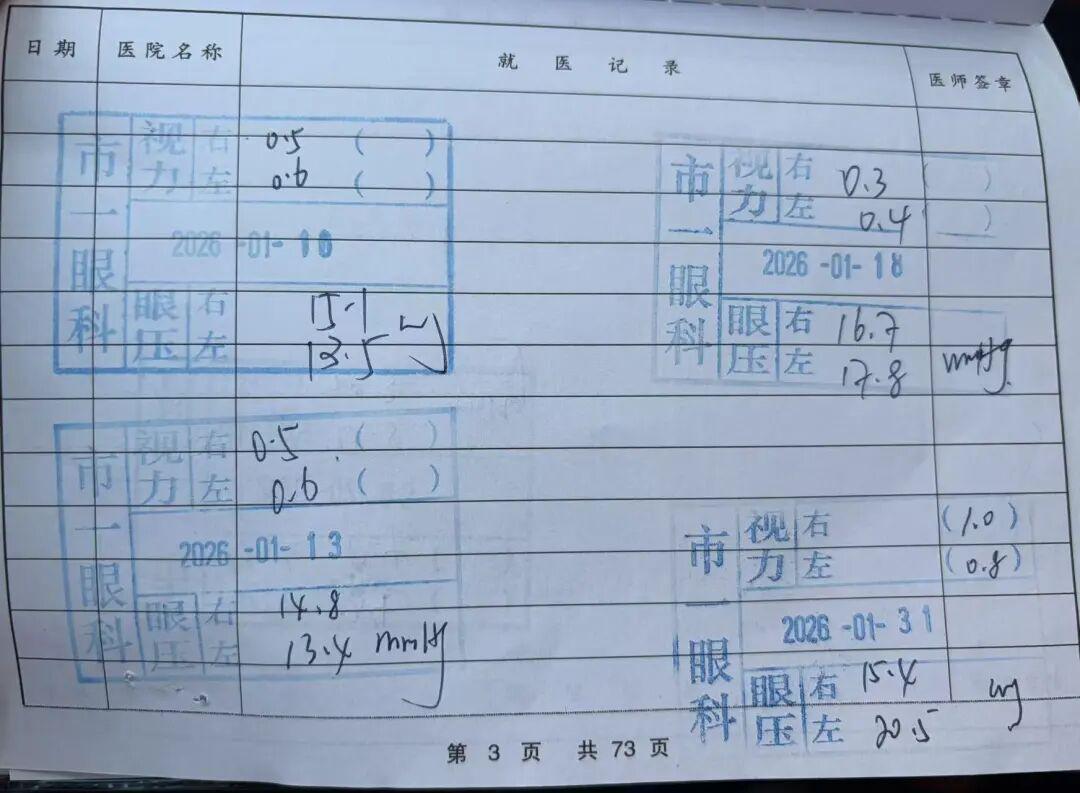 日期 医院名称 就医记录 医师签章
市一眼科
视力 右 0.5 ( )
左 0.6 ( )
2026-01-10
眼压 右 15.1
左 13.5
市一眼科
视力 右 0.3 ( )
左 0.4 ( )
2026-01-18
眼压 右 16.7
左 17.8 mmHg
市一眼科
视力 右 0.5 ( )
左 0.6 ( )
2026-01-13
眼压 右 14.8
左 13.4 mmHg
市一眼科
视力 右 (1.0)
左 (0.8)
2026-01-31
眼压 右 15.4
左 20.5
第 3 页 共 73 页